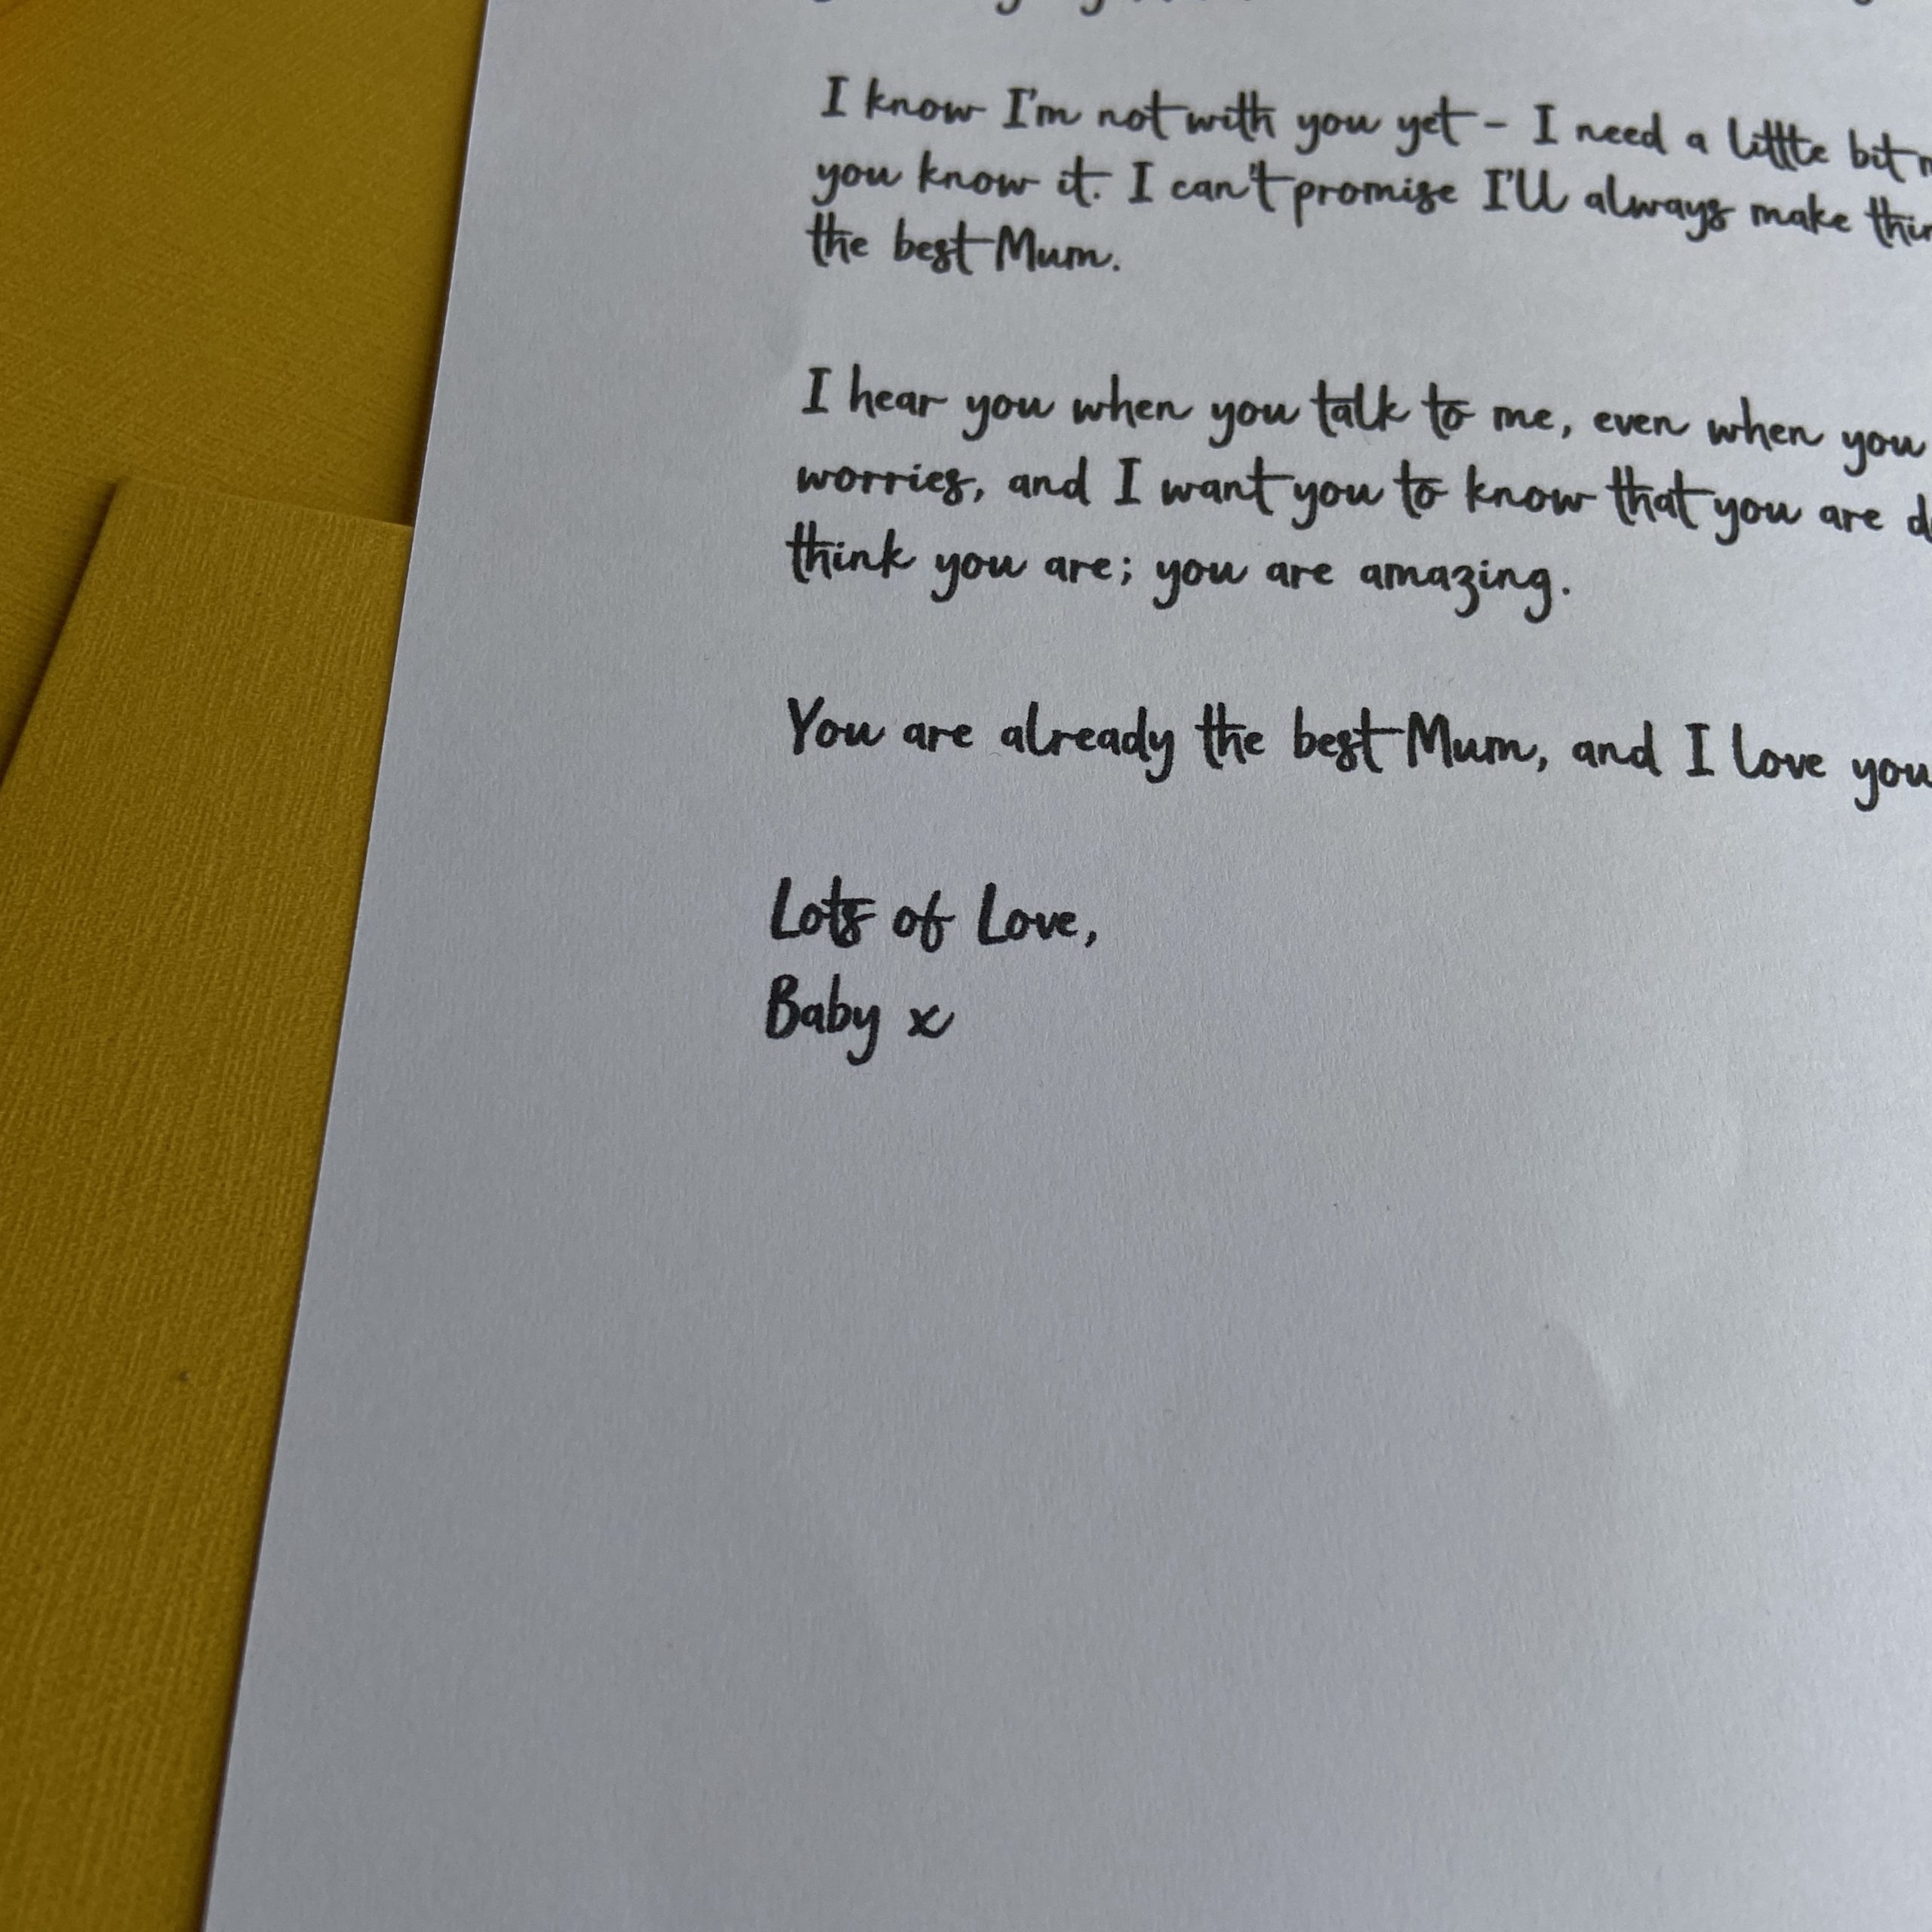 I know I'm not with you yet - I need a little bit
you know it. I can't promise I'll always make
the best Mum.
I hear you when you talk to me, even when you
worries, and I want you to know that you are
think you are; you are amazing.
You are already the best Mum, and I love you
Lots of Love,
Baby x